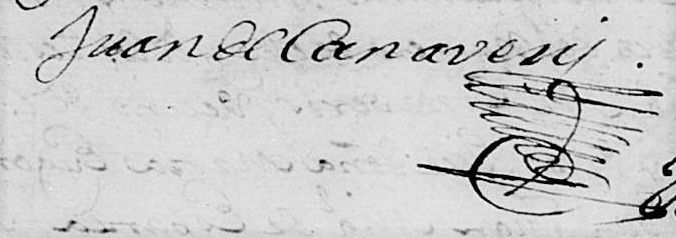 Juan de Canaveris